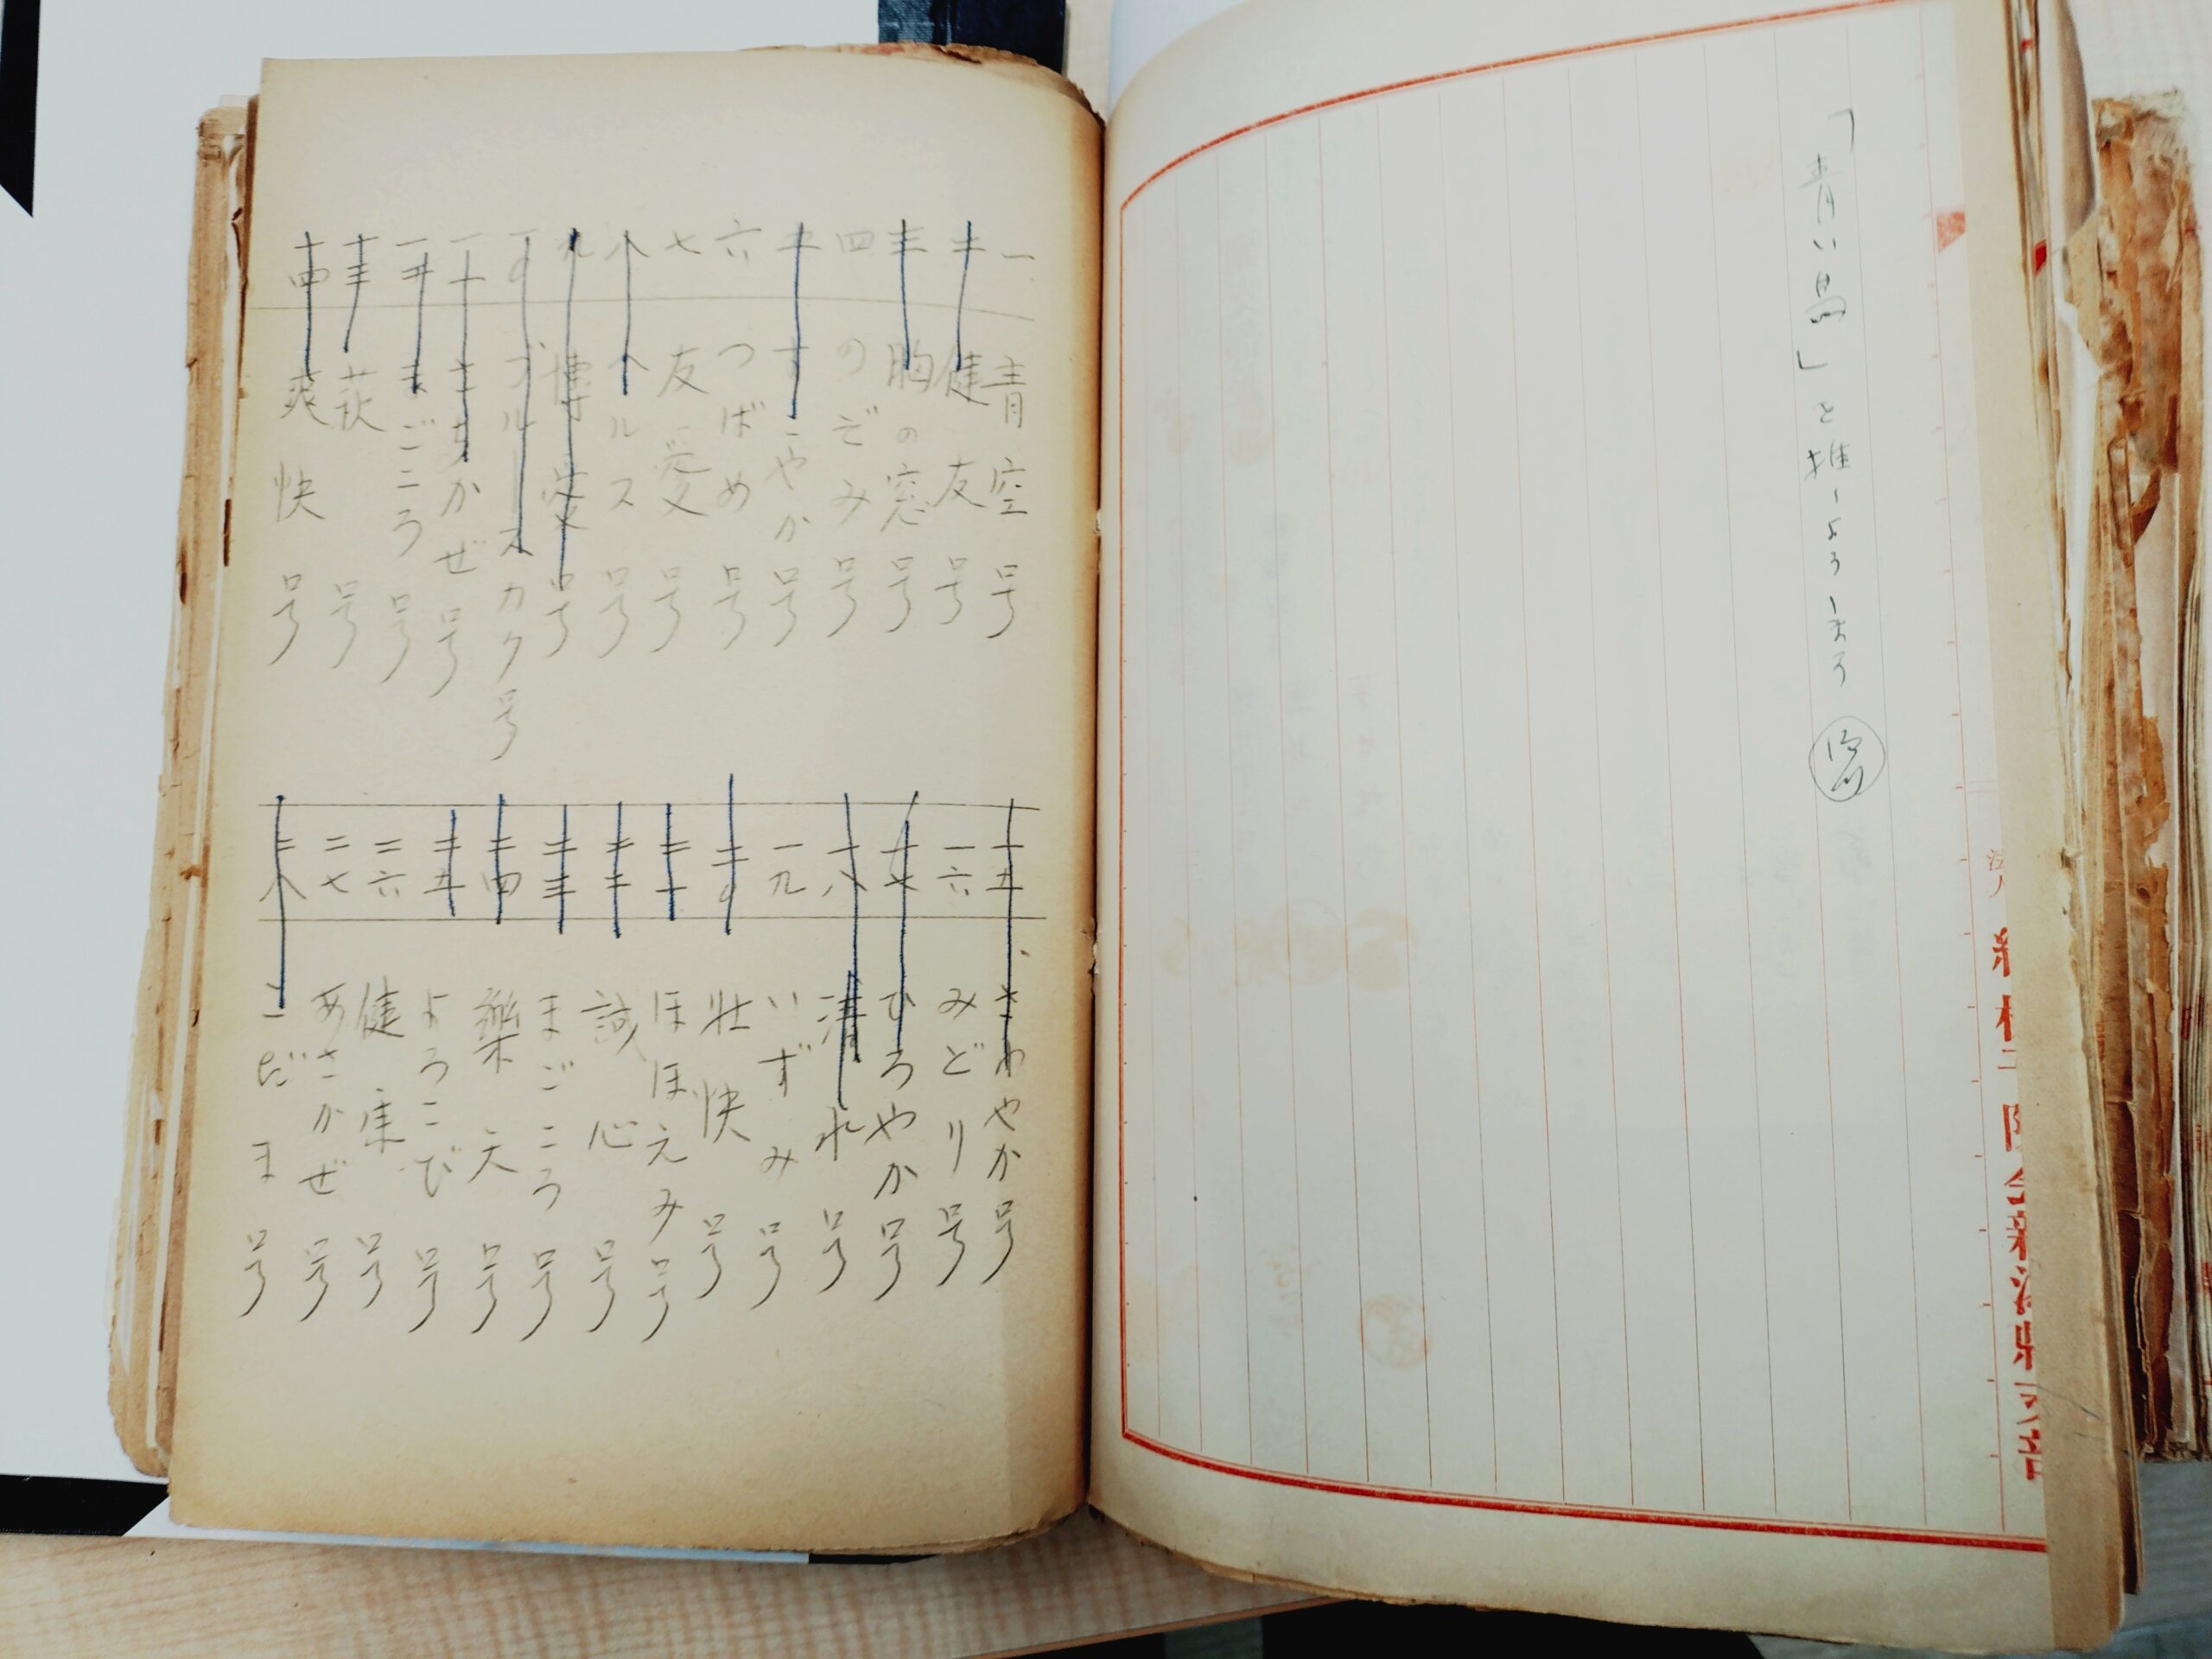 法人 結核予防会新潟県支部
「青い鳥」と推
一 青空号
二 健友号
三 胸の窓号
四 のぞみ号
五 すこやか号
六 つばめ号
七 友愛号
八 ヘルス号
九 博愛号
一〇 ブルースカク号
一一 さちかぜ号
一二 まごころ号
一三 萩号
一四 爽快号
一五 さわやか号
一六 みどり号
一七 ひろやか号
一八 清水号
一九 いずみ号
二〇 壮快号
二一 ほほえみ号
二二 誠心号
二三 まごころ号
二四 樂天号
二五 よろこび号
二六 健康号
二七 あさかぜ号
二八 こだま号